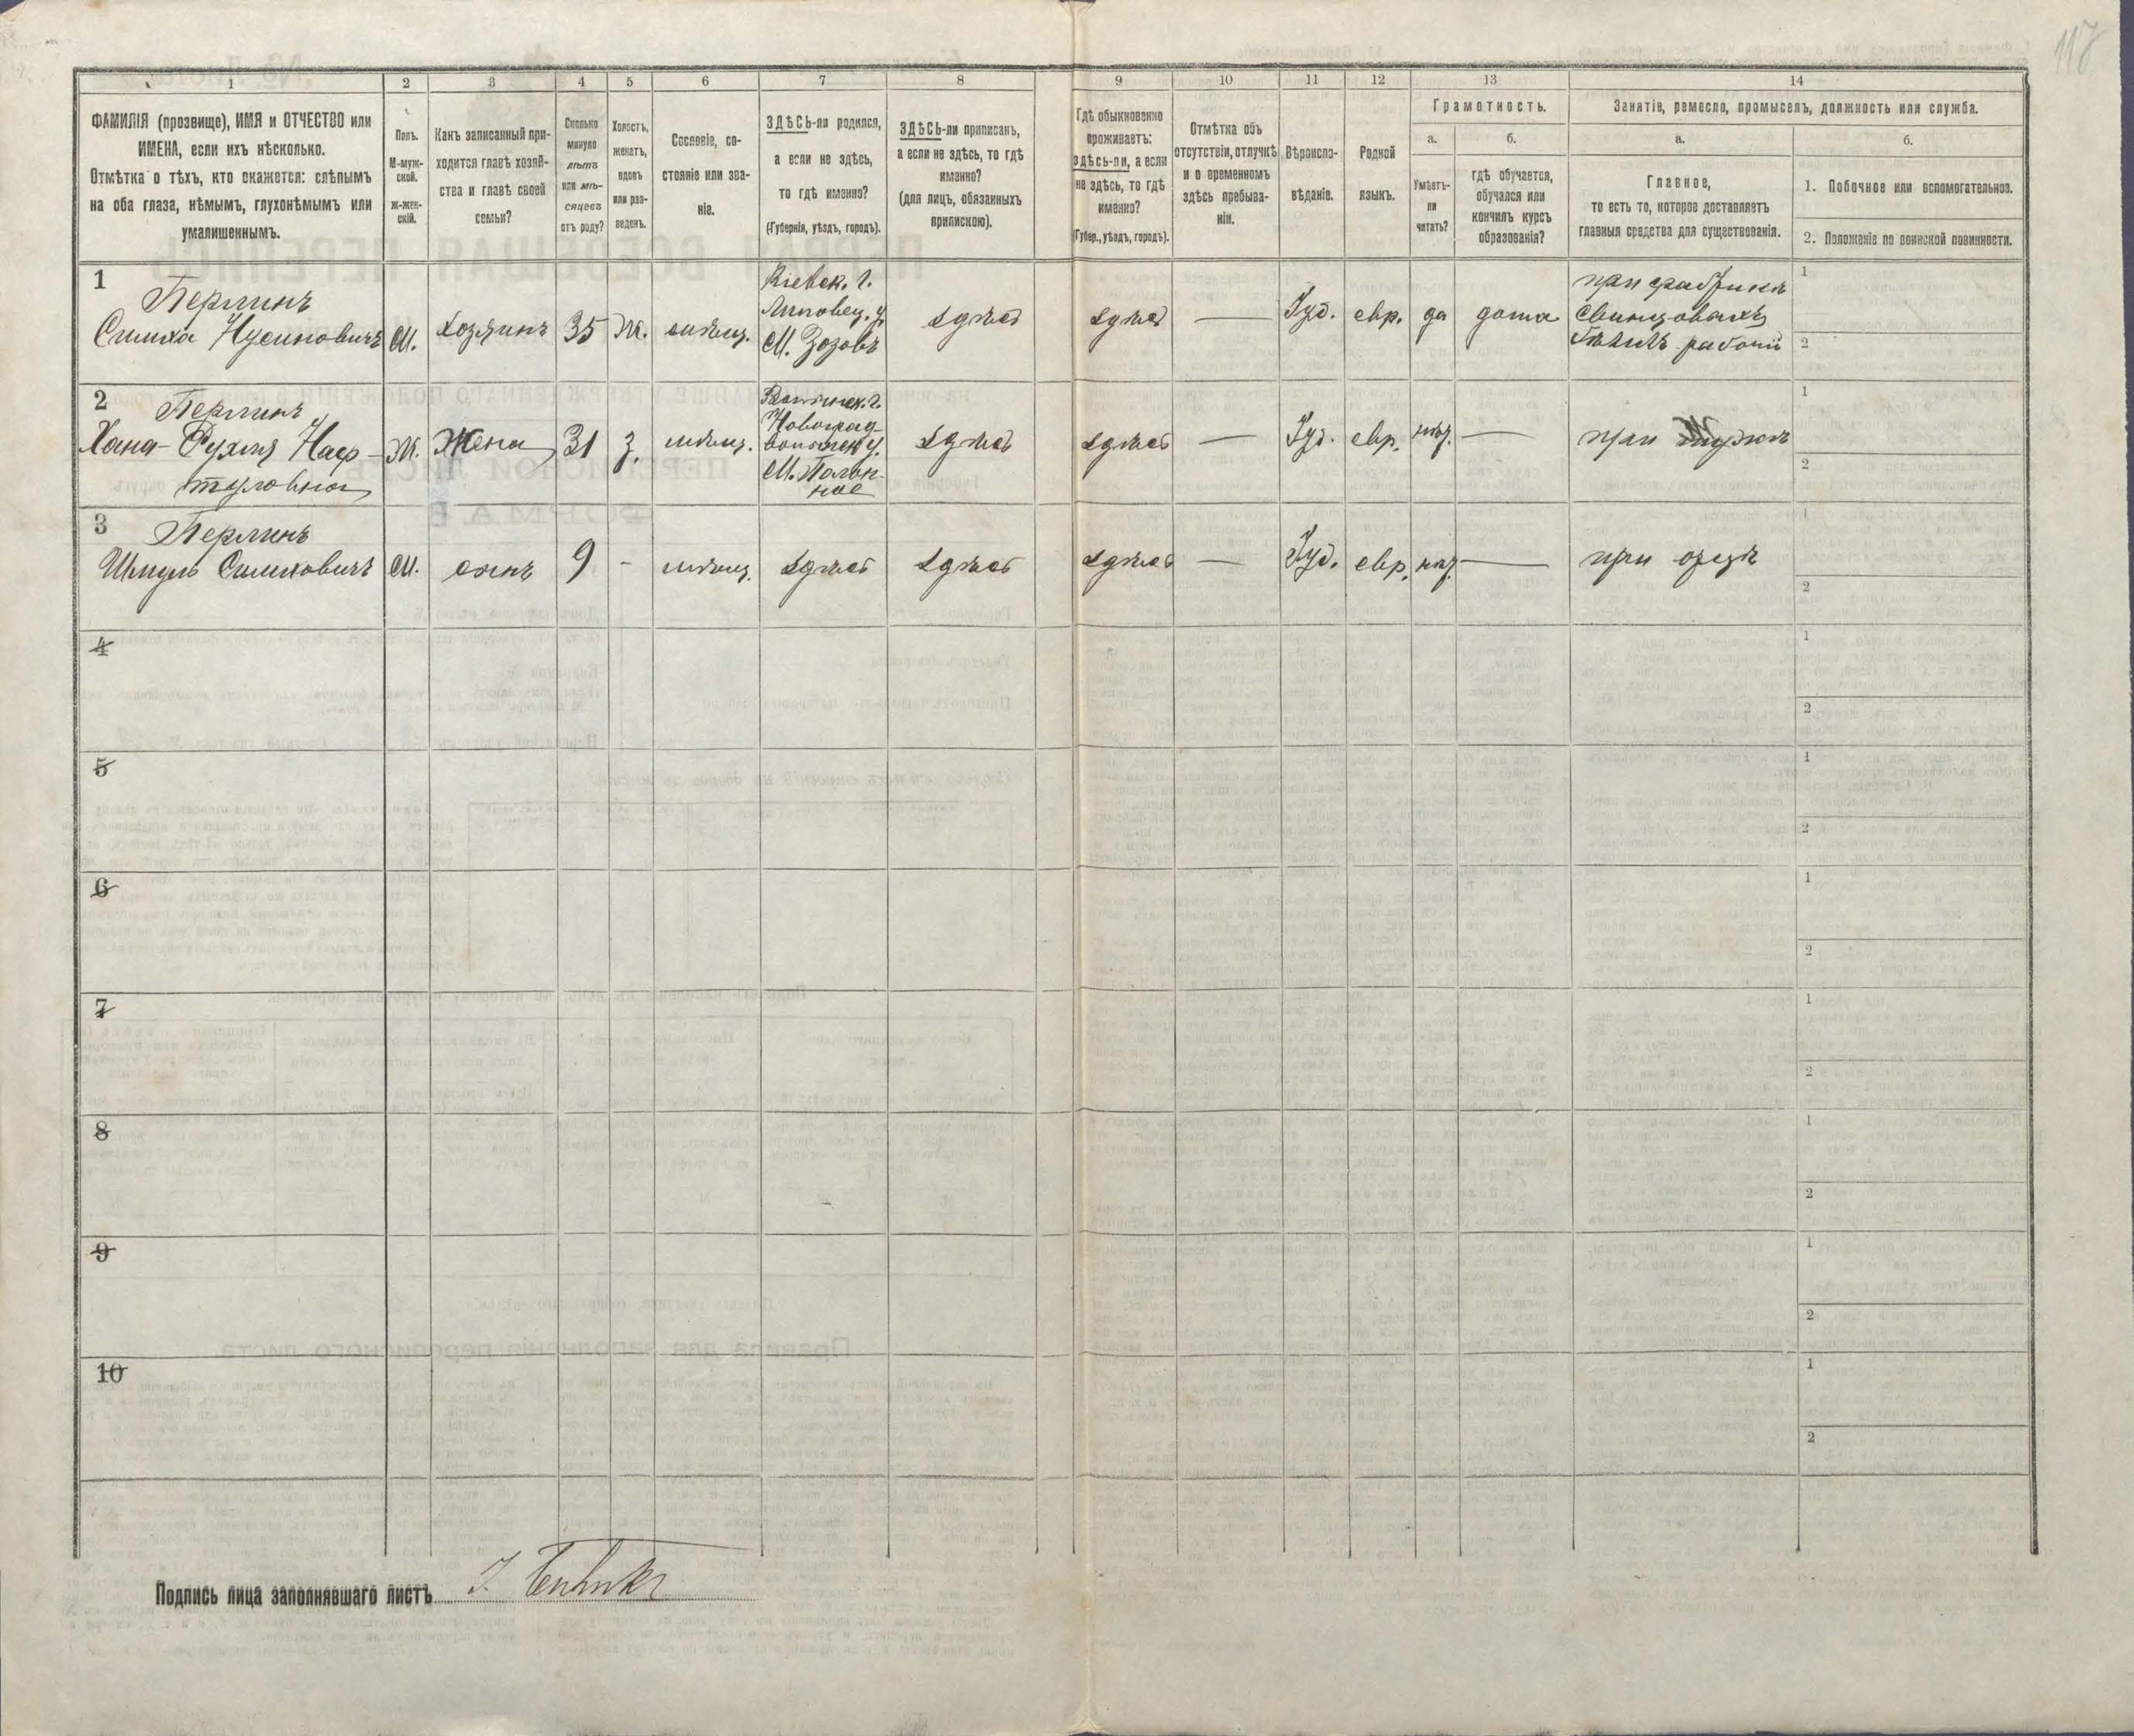 117
1
2
3
4
5
6
7
8
9
10
11
12
13
14
ФАМИЛІЯ (прозвище), ИМЯ и ОТЧЕСТВО или
ИМЕНА, если ихъ нѣсколько.
Отмѣтка о тѣхъ, кто окажется: слѣпымъ
на оба глаза, нѣмымъ, глухонѣмымъ или
умалишеннымъ.
Полъ.
М-муж-
ской.
Ж-жен-
скій.
Какъ записанный при-
ходится главѣ хозяй-
ства и главѣ своей
семьи?
Сколько
минуло
лѣтъ
или мѣ-
сяцевъ
отъ роду?
Холостъ,
женатъ,
вдовъ
или раз-
веденъ.
Сословіе, со-
стояніе или зва-
ніе.
ЗДѢСЬ-ли родился,
а если не здѣсь,
то гдѣ именно?
(Губернія, уѣздъ, городъ).
ЗДѢСЬ-ли приписанъ,
а если не здѣсь, то гдѣ
именно?
(для лицъ, обязанныхъ
припискою).
Гдѣ обыкновенно
проживаетъ:
здѣсь-ли, а если
не здѣсь, то гдѣ
именно?
(Губер., уѣздъ, городъ).
Отмѣтка объ
отсутствіи, отлучкѣ
и о временномъ
здѣсь пребыва-
ніи.
Вѣроиспо-
вѣданіе.
Родной
языкъ.
Грамотность.
а.
Умѣетъ-
ли
читать?
б.
гдѣ обучается,
обучался или
кончилъ курсъ
образованія?
Занятіе, ремесло, промыселъ, должность или служба.
а.
Главное,
то есть то, которое доставляетъ
главныя средства для существованія.
б.
1. Побочное или вспомогательное.
2. Положеніе по воинской повинности.
1
Перлинъ
Симха Нусиновичъ
М.
хозяинъ
35
ж.
мѣщ.
Кіевск. г.
Липовец. у.
М. Зозовъ
здѣсь
здѣсь
Іуд.
евр.
да
дома
при фабрикѣ
свинцовыхъ
бѣлилъ рабочій
1
2
2
Перлинъ
Хана-Рухля Наф-
туловна
ж.
жена
31
з.
мѣщ.
Волынск. г.
Новоград-
волынск у.
М. Полон-
ное
здѣсь
здѣсь
Іуд.
евр.
нѣт.
при мужѣ
1
2
3
Перлинъ
Шмуль Симховичъ
М.
сынъ
9
-
мѣщ.
здѣсь
здѣсь
здѣсь
Іуд.
евр.
нѣт.
при отцѣ
1
2
4
1
2
5
1
2
6
1
2
7
1
2
8
1
2
9
1
2
10
1
2
Подпись лица заполнявшаго листъ